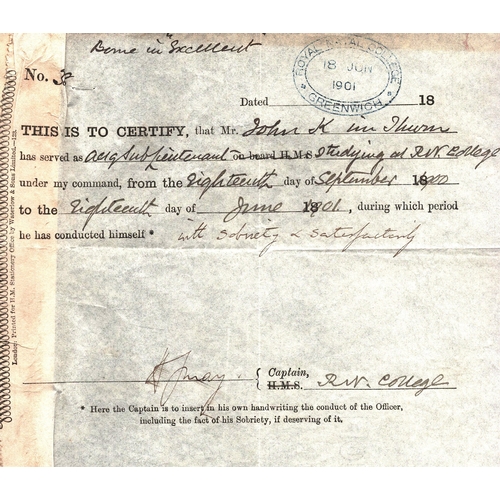 Borne in "Excellent
No. 38
ROYAL NAVAL COLLEGE
18 JUN
1901
* GREENWICH *
Dated 18
THIS IS TO CERTIFY, that Mr. John K im Thurn
has served as actg Sub Lieutenant on board H.M.S. Studying at R.N. College
under my command, from the Eighteenth day of September 1900
to the Eighteenth day of June 1901, during which period
he has conducted himself * with Sobriety & Satisfactorily
Captain,
H.M.S. R.N. College
* Here the Captain is to insert in his own handwriting the conduct of the Officer,
including the fact of his Sobriety, if deserving of it.
London: Printed for H.M. Stationery Office by Waterlow & Sons Limited